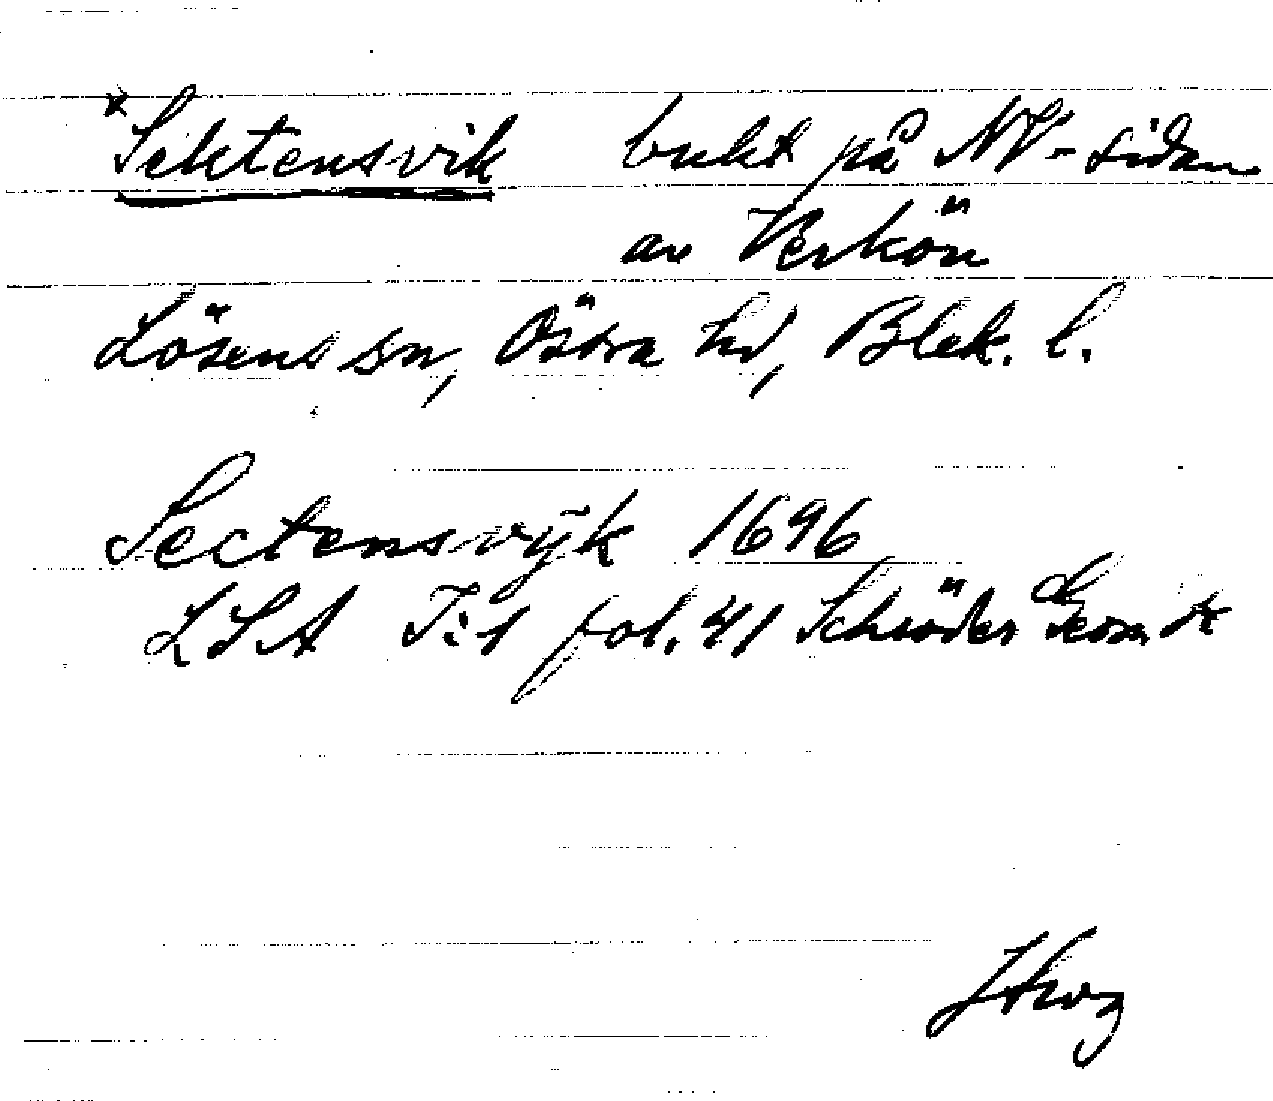 *Sektensvik bukt på NV-sidan
av Verkön
Lösens sn, Östra hd, Blek. l.
Sectenswÿk 1696
LSA I:1 fol. 41 Schröder Geom. k